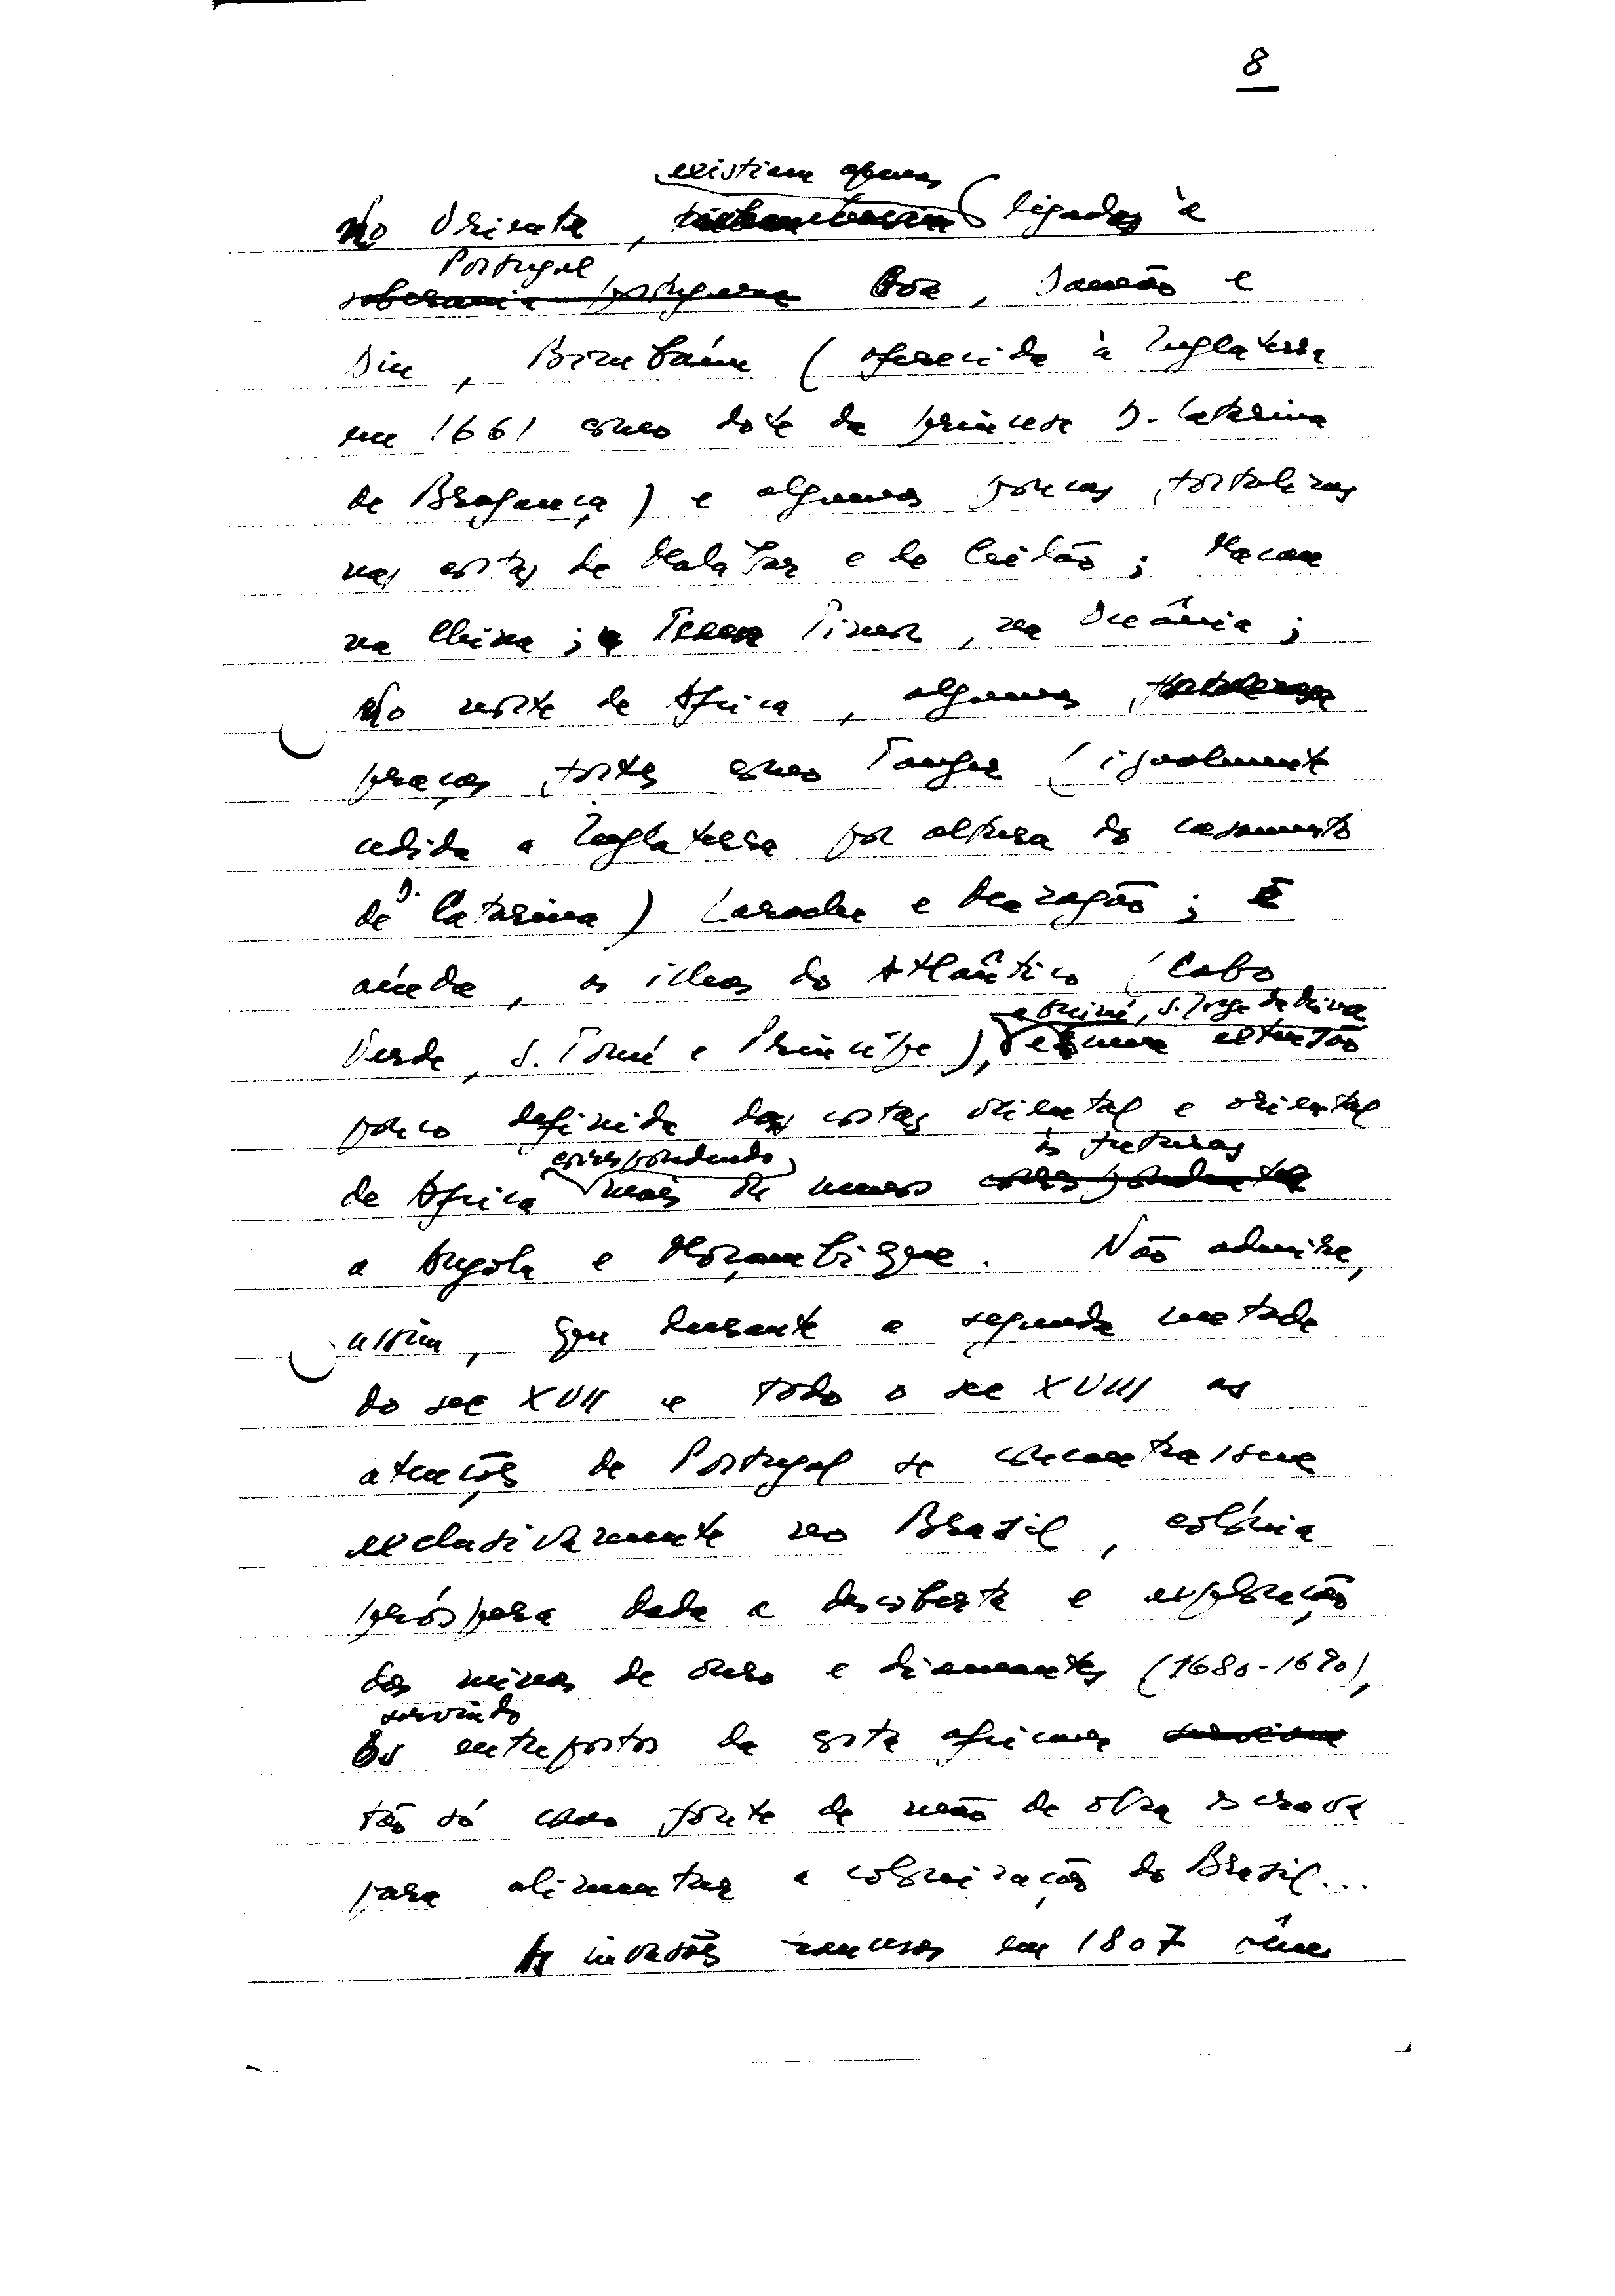 8
existiam apenas
No Oriente, ligadas à
Portugal
soberania portuguesa Goa, Damão e
Diu, Bombaím (oferecida à Inglaterra
em 1661 como dote da princesa D. Catarina
de Bragança) e algumas poucas fortalezas
nas costas de Malabar e de Ceilão; Macau
na China; Timor, na Oceânia;
No norte de Africa, algumas fortalezas
praças fortes como Tanger (igualmente
cedida a Inglaterra por altura do casamento
de D. Catarina) Larache e Mazagão; E
ainda, as ilhas do Atlântico (Cabo
a Guiné, S. Jorge da Mina
Verde, S. Tomé e Princípe), e uma extensão
pouco definida das costas oriental e oriental
correspondendo às futuras
de Africa mais ou menos correspondentes
a Angola e Moçambique. Não admira,
assim, que durante a segunda metade
do sec XVII e todo o sec XVIII as
atenções de Portugal se concentrassem
exclusivamente no Brasil, colónia
próspera dada a descoberta e exploração
das minas de ouro e diamantes (1680-1690),
servindo
os entrepostos da costa africana serviam
tão só como fonte de mão de obra escrava
para alimentar a colonização do Brasil...
As invasões francesas em 1807 vêm